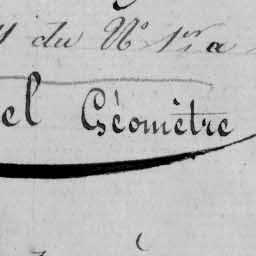 du N° 1er a
el Géomètre